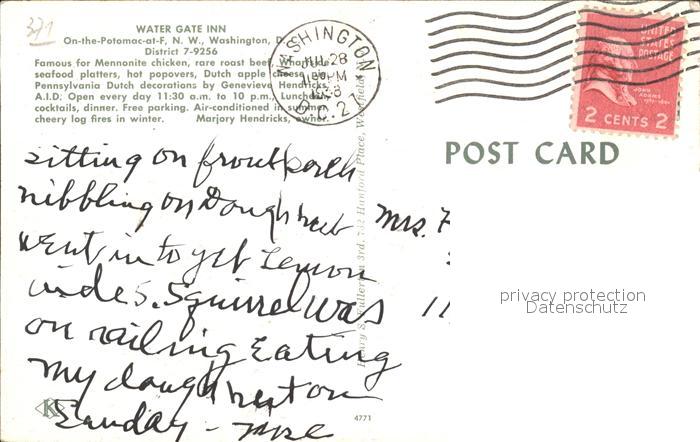 371
WATER GATE INN
On-the-Potomac-at-F, N. W., Washington, D.
District 7-9256
Famous for Mennonite chicken, rare roast beef,
seafood platters, hot popovers, Dutch apple cheese
Pennsylvania Dutch decorations by Genevieve Hendricks,
A.I.D. Open every day 11:30 a.m. to 10 p.m. Luncheon,
cocktails, dinner. Free parking. Air-conditioned in summer,
cheery log fires in winter. Marjory Hendricks, owner.
WASHINGTON
JUL 28
PM
D.C. 21
UNITED
STATES
POSTAGE
JOHN
ADAMS
2 CENTS 2
POST CARD
sitting on front porch
nibbling on Doughnut
went in to get Lemon
ade. Squirrel was
on railing Eating
my doughnut on
Sunday -
Mrs. F
Henry S. Fullerton 3rd, Hanford Place, Westfield
K
4771
privacy protection
Datenschutz